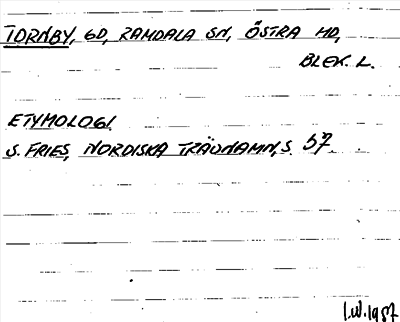 TORNBY, GD, RAMDALA SN, ÖSTRA HD,
BLEK. L.
ETYMOLOGI.
S. FRIES, NORDISKA TRÄDNAMN, S. 57.
I.W. 1987